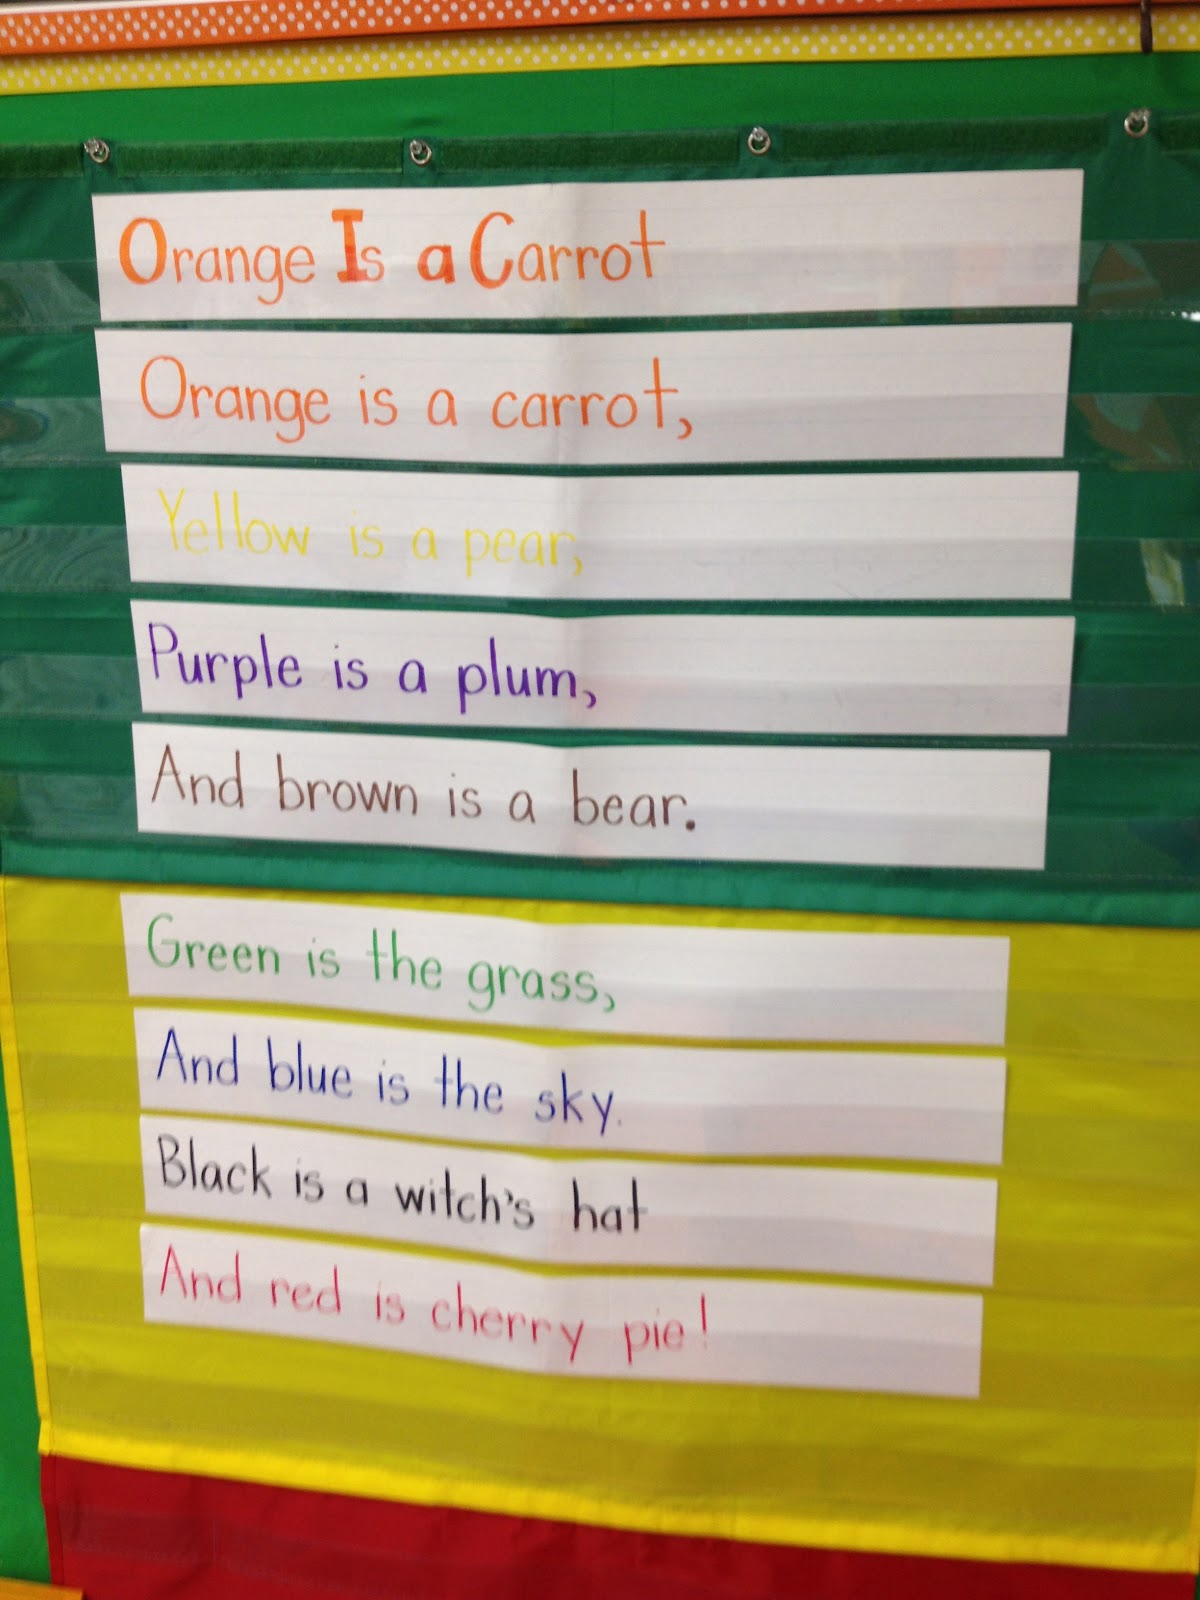 Orange Is a Carrot
Orange is a carrot,
Yellow is a pear,
Purple is a plum,
And brown is a bear.
Green is the grass,
And blue is the sky.
Black is a witch's hat
And red is cherry pie!